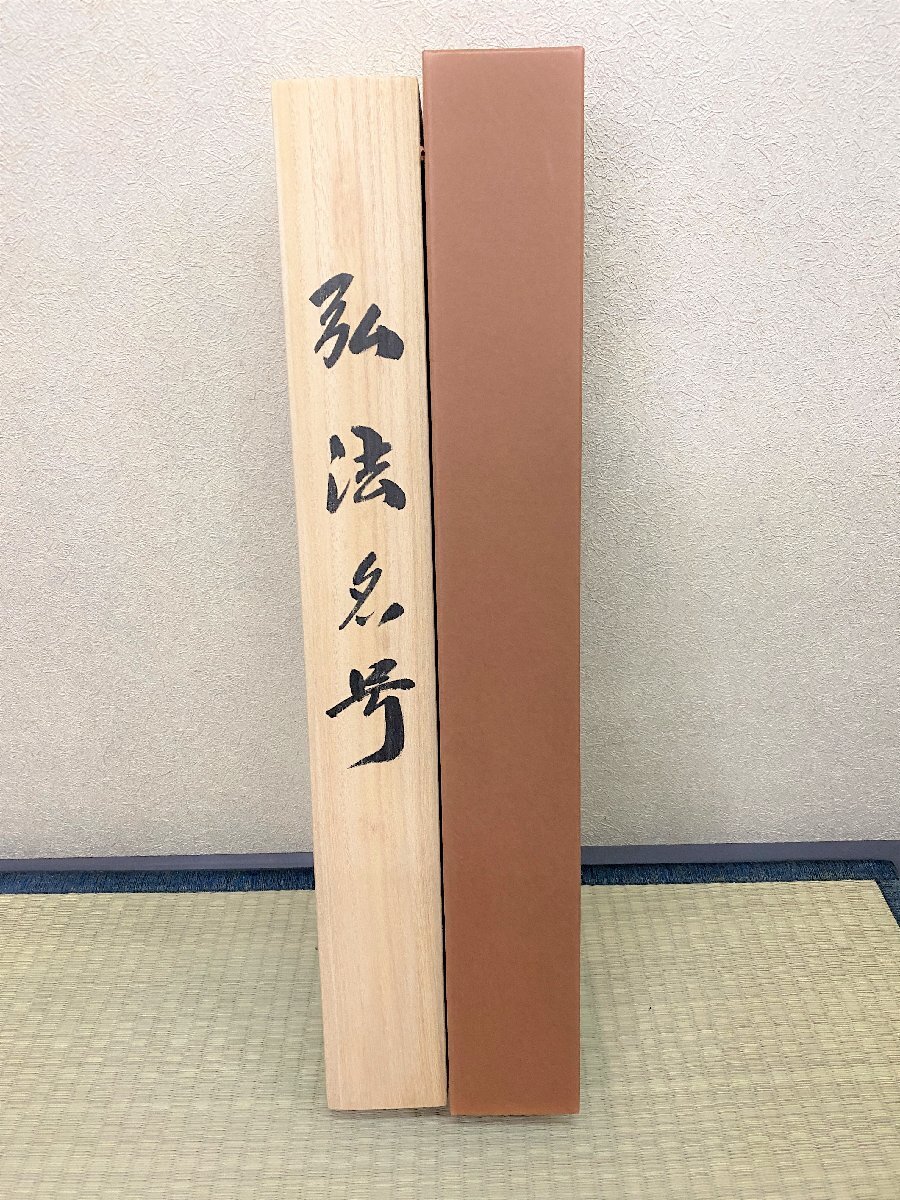 弘法名号